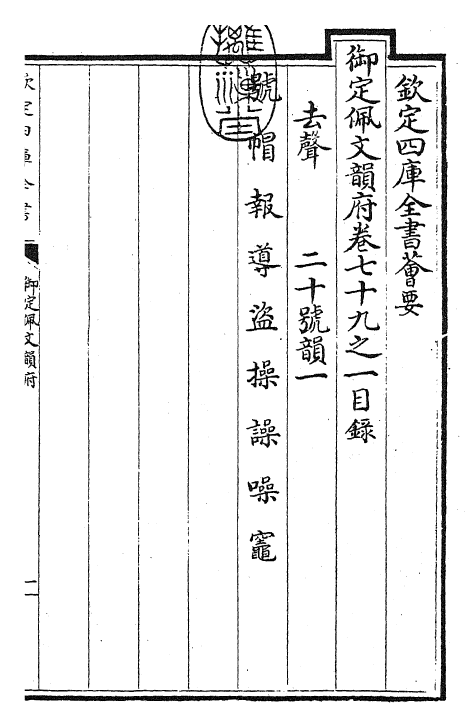 欽定四庫全書薈要
御定佩文韻府卷七十九之一目錄
去聲　二十號韻一
號帽報導盜操譟噪竈
欽定四庫全書
御定佩文韻府